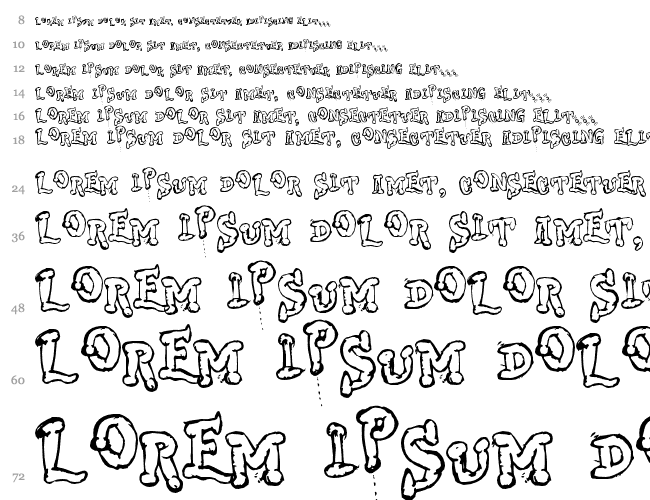 8 LOREM IPSUM DOLOR SIT AMET, CONSECTETUER ADIPISCING ELIT...
10 LOREM IPSUM DOLOR SIT AMET, CONSECTETUER ADIPISCING ELIT...
12 LOREM IPSUM DOLOR SIT AMET, CONSECTETUER ADIPISCING ELIT...
14 LOREM IPSUM DOLOR SIT AMET, CONSECTETUER ADIPISCING ELIT...
16 LOREM IPSUM DOLOR SIT AMET, CONSECTETUER ADIPISCING ELIT...
18 LOREM IPSUM DOLOR SIT AMET, CONSECTETUER ADIPISCING ELI
24 LOREM IPSUM DOLOR SIT AMET, CONSECTETUER
36 LOREM IPSUM DOLOR SIT AMET,
48 LOREM IPSUM DOLOR SI
60 LOREM IPSUM DOLO
72 LOREM IPSUM DO